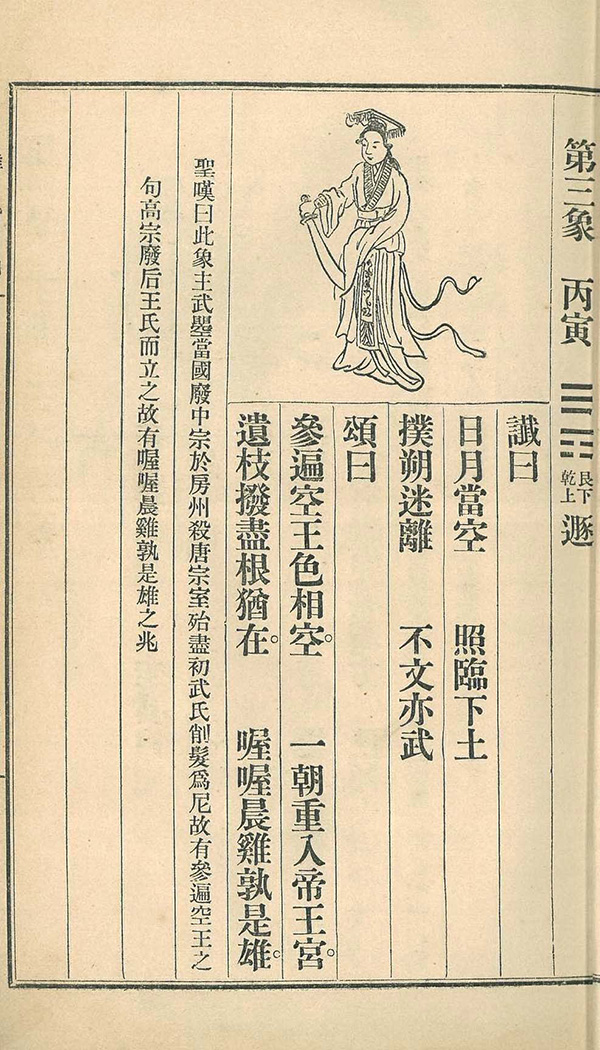 第三象 丙寅 ䷠ 艮下乾上 遯
讖曰
日月當空 照臨下土
撲朔迷離 不文亦武
頌曰
參遍空王色相空。 一朝重入帝王宮。
遺枝撥盡根猶在。 喔喔晨雞孰是雄。
聖嘆曰此象主武曌當國廢中宗於房州殺唐宗室殆盡初武氏削髮爲尼故有參遍空王之
句高宗廢后王氏而立之故有喔喔晨雞孰是雄之兆